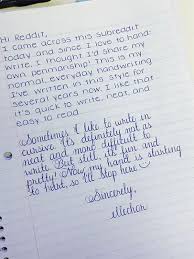 Hi Reddit,
I came across this subreddit
today, and since I love to hand-
write, I thought I'd share my
own penmanship! This is my
normal, everyday handwriting.
I've written in this style for
several years now. I like that
it's quick to write, neat, and
easy to read.
Sometimes I like to write in
cursive. It's definitely not as
neat and more difficult to
write. But still, it's fun and
pretty! Now my hand is starting
to hurt, so I'll stop here
Sincerely,